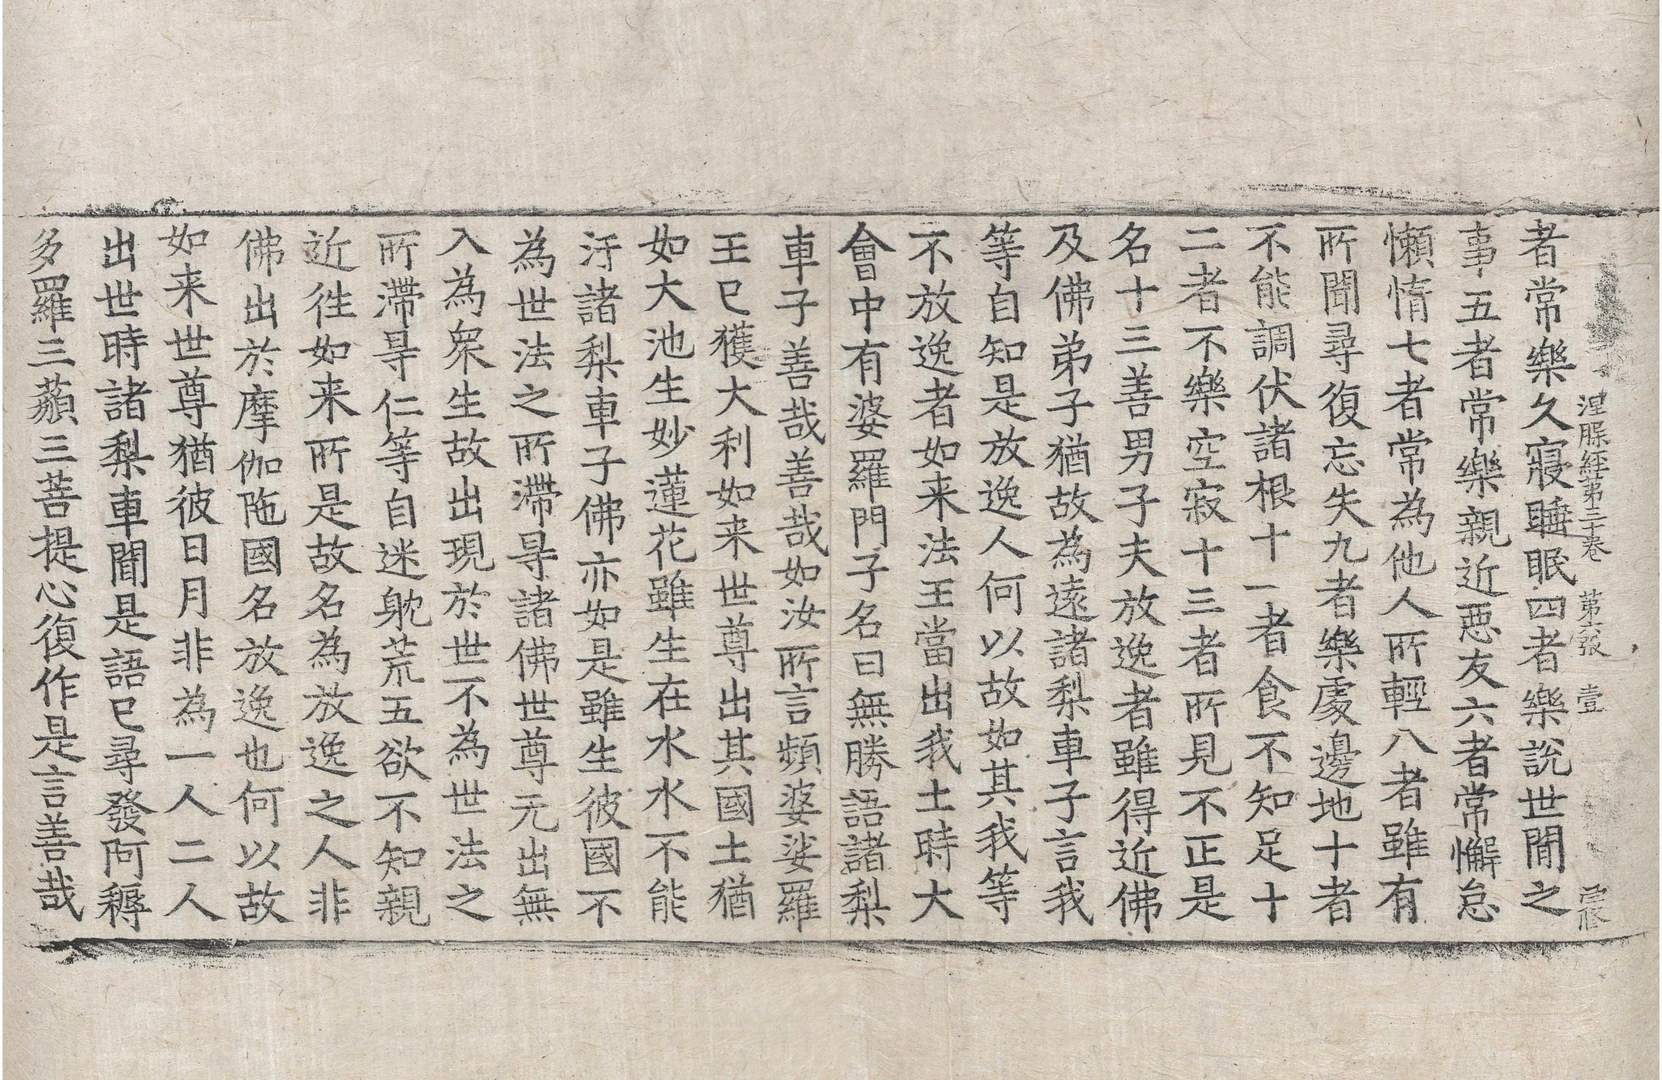 涅槃經第三十卷 第六張 壹
者常樂久寢睡眠四者樂說世間之
事五者常樂親近惡友六者常懈怠
懶惰七者常為他人所輕八者雖有
所聞尋復忘失九者樂處邊地十者
不能調伏諸根十一者食不知足十
二者不樂空寂十三者所見不正是
名十三善男子夫放逸者雖得近佛
及佛弟子猶故為遠諸梨車子言我
等自知是放逸人何以故如其我等
不放逸者如来法王當出我土時大
會中有婆羅門子名曰無勝語諸梨
車子善哉善哉如汝所言頻婆娑羅
王已獲大利如来世尊出其國土猶
如大池生妙蓮花雖生在水水不能
汙諸梨車子佛亦如是雖生彼國不
為世法之所滯㝵諸佛世尊无出無
入為衆生故出現於世不為世法之
所滯㝵仁等自迷躭荒五欲不知親
近徃如来所是故名為放逸之人非
佛出於摩伽陁國名放逸也何以故
如来世尊猶彼日月非為一人二人
出世時諸梨車聞是語已尋發阿耨
多羅三藐三菩提心復作是言善哉